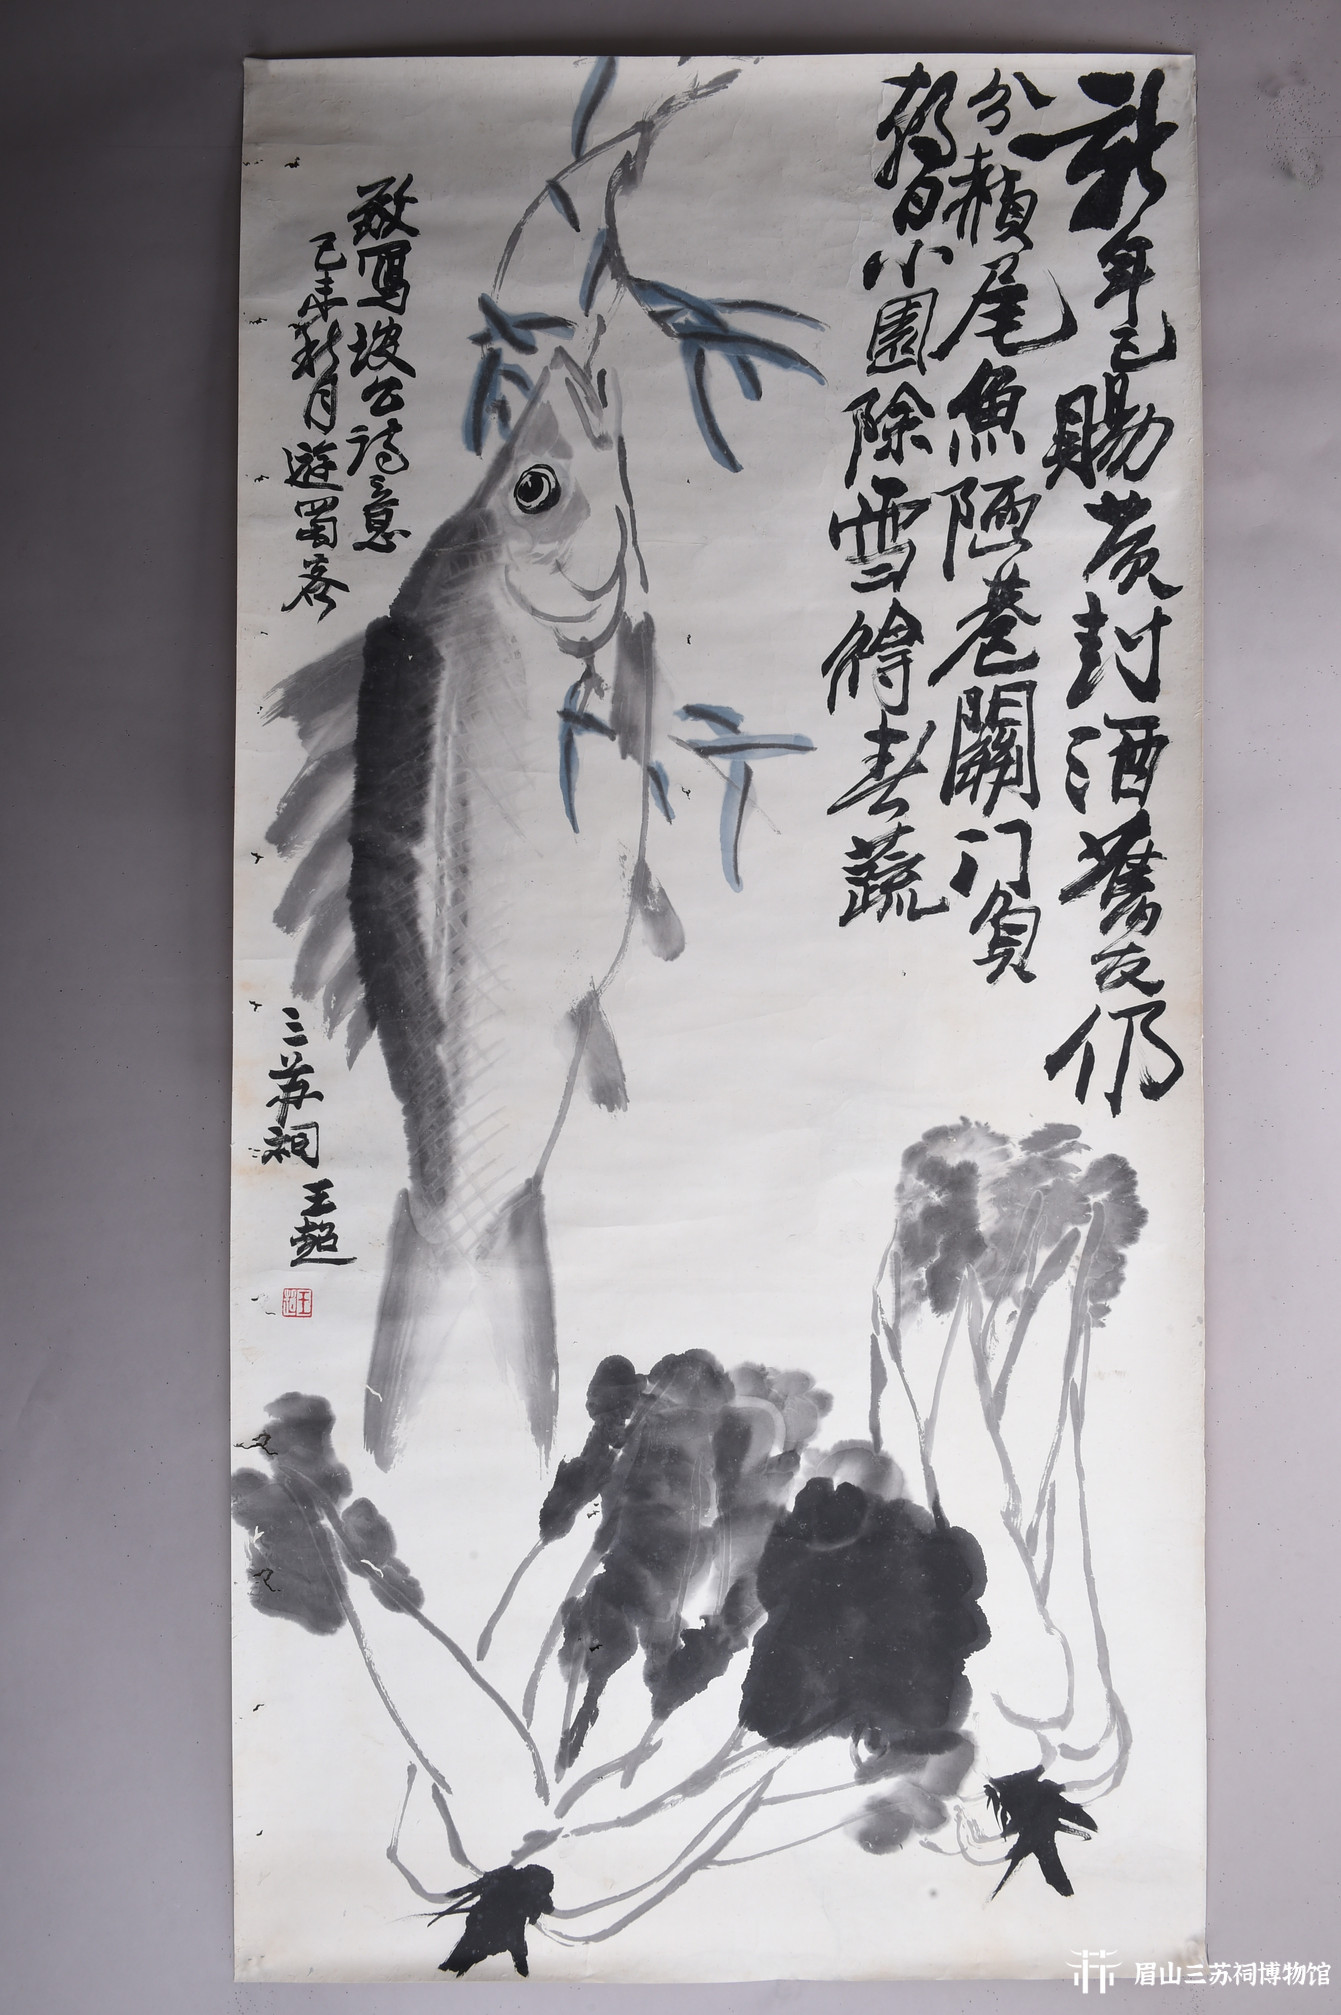 新年已賜黄封酒舊友仍
分赬尾魚陋巷關门負
朝日小園除雪得春蔬
敬寫坡公诗意
己未秋月遊蜀客
三苏祠王超
眉山三苏祠博物馆